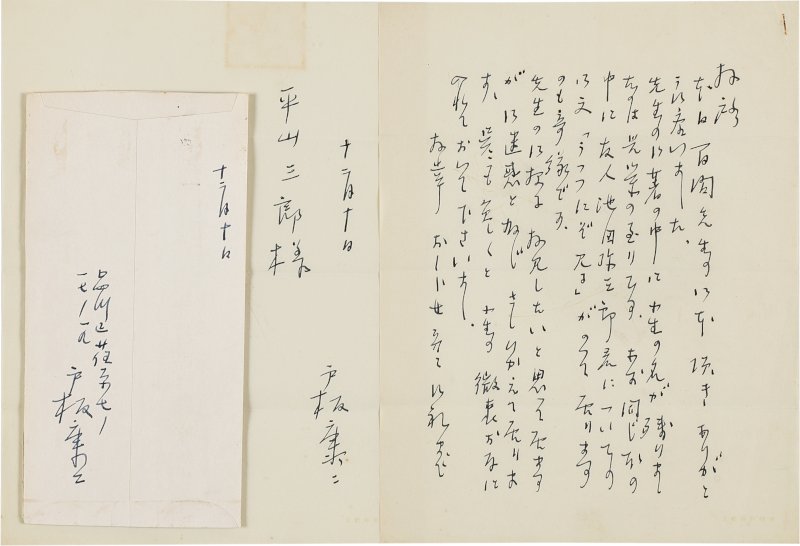 拝啓
本日 百閒先生の御本 頂き ありがと
う御座いました。
先生の御著の中に 小生の名が 残りまし
たのは 光栄の至りです。なお 同じ本の
中に 友人 池田弥三郎君についての
御文「うつつにぞ見る」がのって居ります
のも奇縁です。
先生の御 お しきたいと思って居ます
が 御迷惑と存じ さしひかえて居りま
す、呉々も宜しくと 小生の 微衷お耳に
入れておいて下さいまし。
御礼まで
十二月十日
戸板康二
平山三郎様
十二月十日
品川区荏原七ノ
一七ノ一九
戸板康二